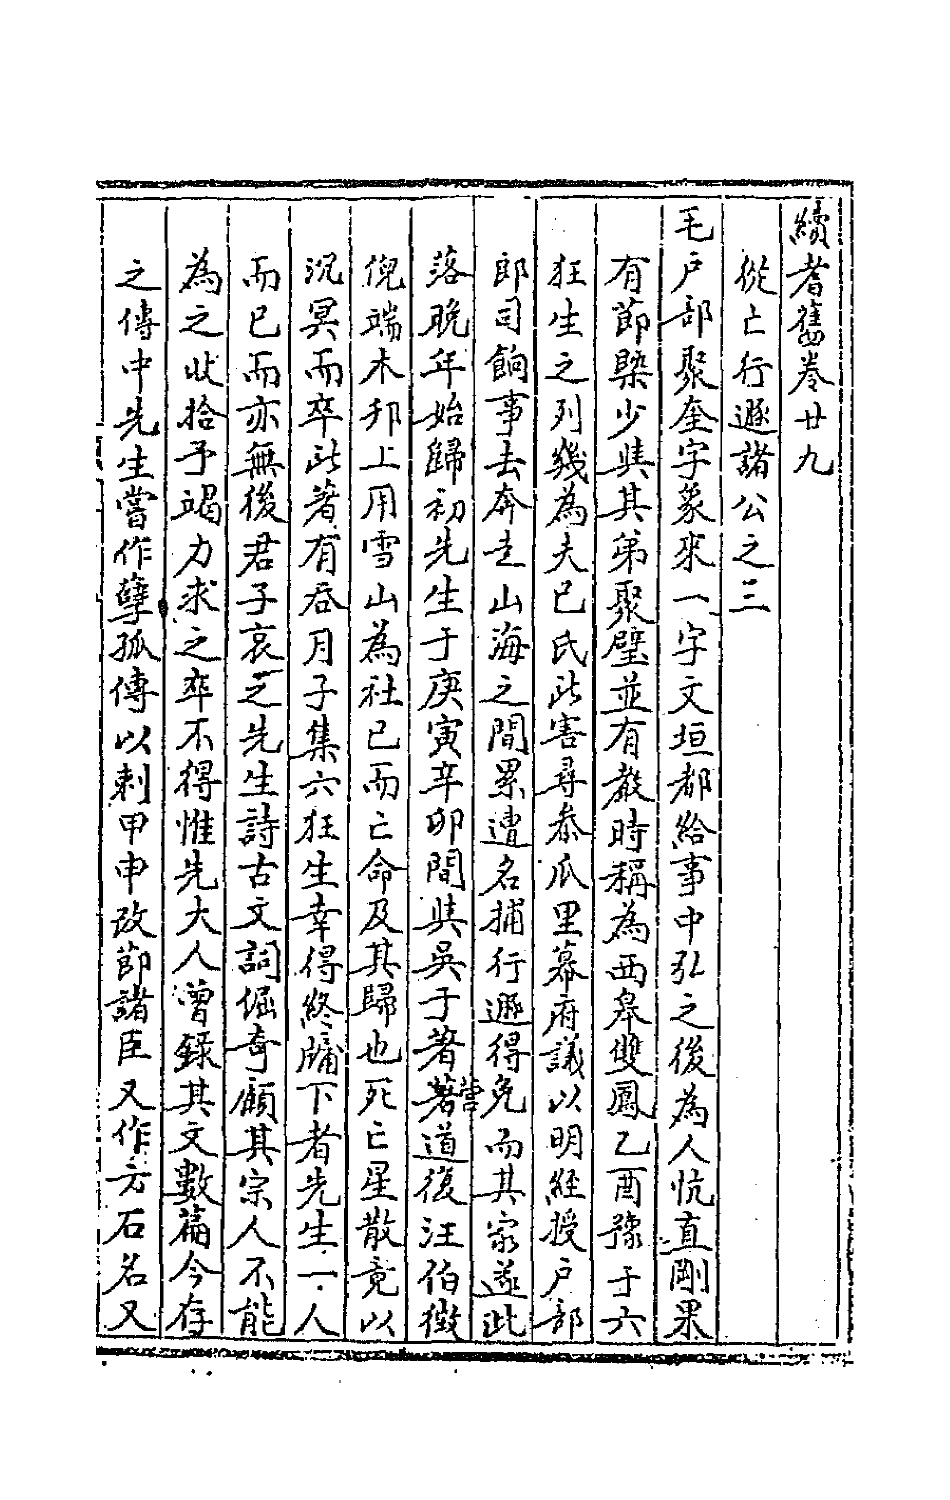 續耆舊卷廿九
從亡行遯諸公之三
毛戶部聚奎字象來一字文垣都給事中弘之後為人忼直剛果
有節槩少與其弟聚壁並有教時稱為西皋雙鳳乙酉豫于六
狂生之列幾為夫己氏此害尋叅瓜里幕府議以明經授戶部
郎司餉事去奔走山海之間累遭名捕行遯得免而其家遂此
落晚年始歸初先生于庚寅辛卯間與吳于著著道復汪伯徵
倪端木邦上用雪山為社已而亡命及其歸也死亡星散竟以
沉冥而卒此著有吞月子集六狂生幸得終牖下者先生一人
而已而亦無後君子哀之先生詩古文詞倔奇顧其宗人不能
為之收拾予竭力求之卒不得惟先大人曾錄其文數篇今存
之傳中先生嘗作孽孤傳以刺甲申改節諸臣又作方石名又